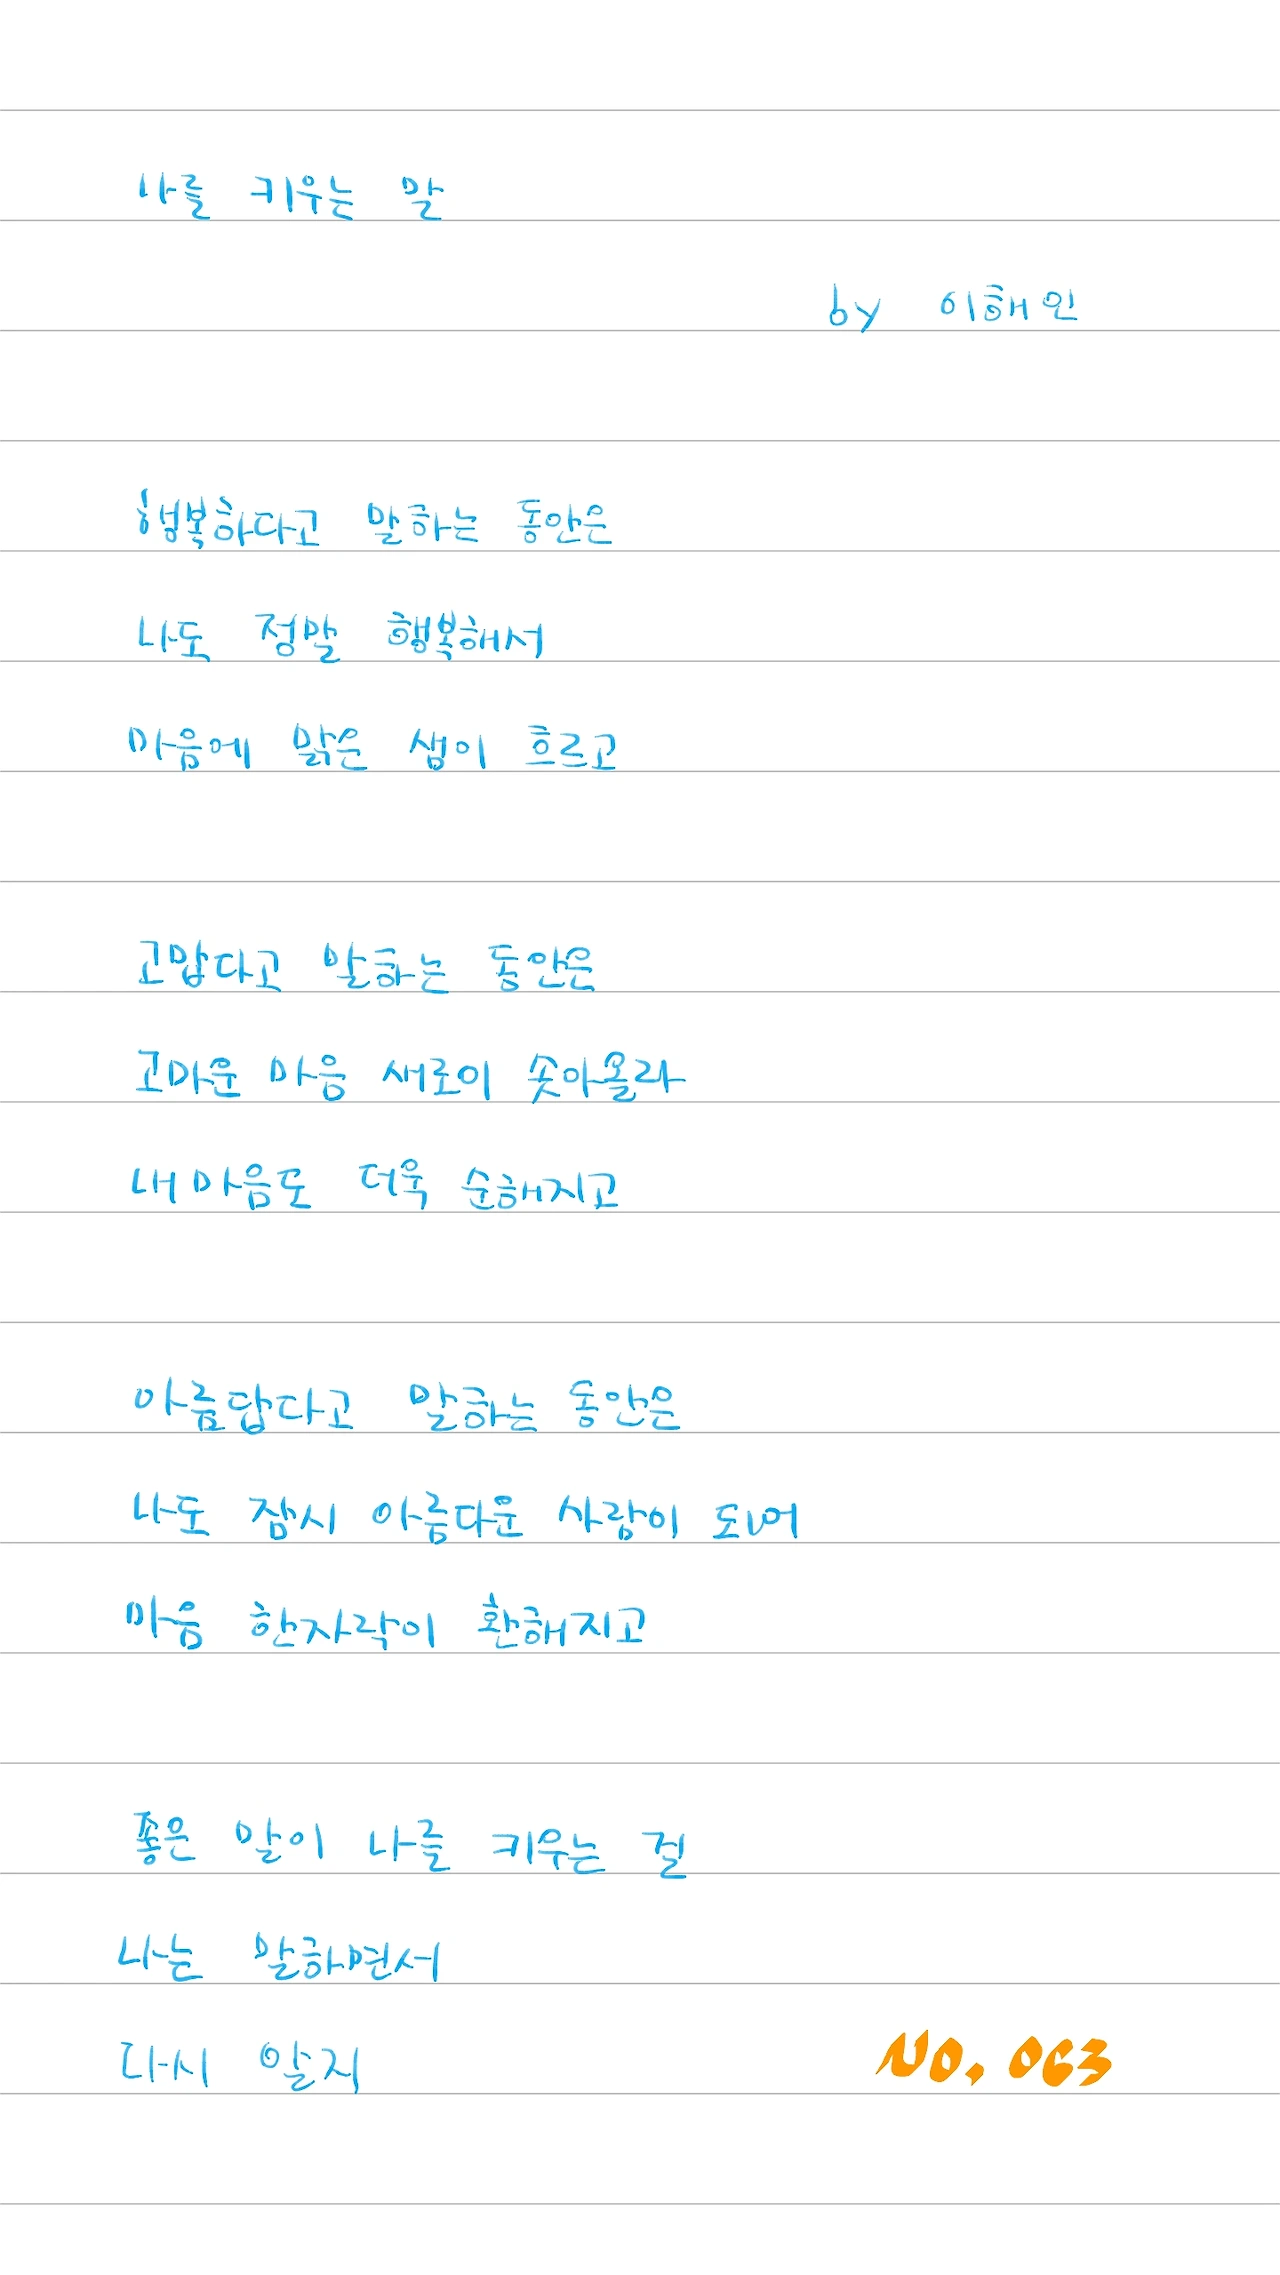 나를 키우는 말
by 이해인
행복하다고 말하는 동안은
나도 정말 행복해서
마음에 맑은 샘이 흐르고
고맙다고 말하는 동안은
고마운 마음 새로이 솟아올라
내 마음도 더욱 순해지고
아름답다고 말하는 동안은
나도 잠시 아름다운 사람이 되어
마음 한자락이 환해지고
좋은 말이 나를 키우는 걸
나는 말하면서
다시 알지
NO. 063